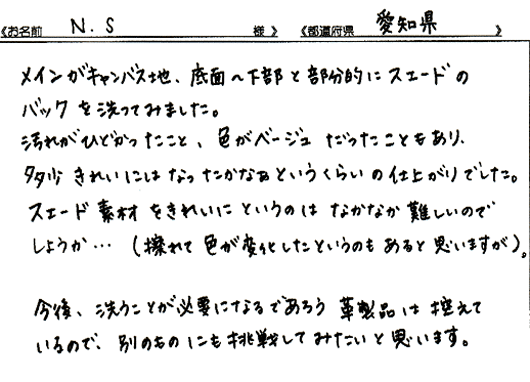 《お名前 N.S 様》 《都道府県 愛知県 》
メインがキャンバス地、底面〜下部と部分的にスエードの
バックを洗ってみました。
汚れがひどかったこと、色がベージュだったこともあり、
多少きれいにはなったかなぁというくらいの仕上がりでした。
スエード素材をきれいにというのはなかなか難しいので
しょうか… (擦れて色が変化したというのもあると思いますが)。
今後、洗うことが必要になるであろう革製品は控えて
いるので、別のものにも挑戦してみたいと思います。